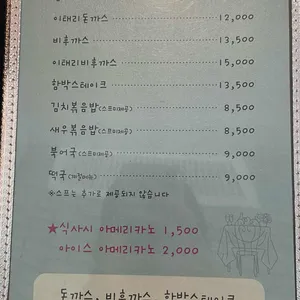 이태리돈까스 12,000
비후까스 13,500
이태리비후까스 15,000
함박스테이크 13,500
김치볶음밥(스프미제공) 8,500
새우볶음밥(스프미제공) 8,500
북어국(스프미제공) 9,000
떡국 9,000
※스프는 추가로 제공되지 않습니다
★식사시 아메리카노 1,500
아이스 아메리카노 2,000
돈까스, 비후까스, 함박스테이크